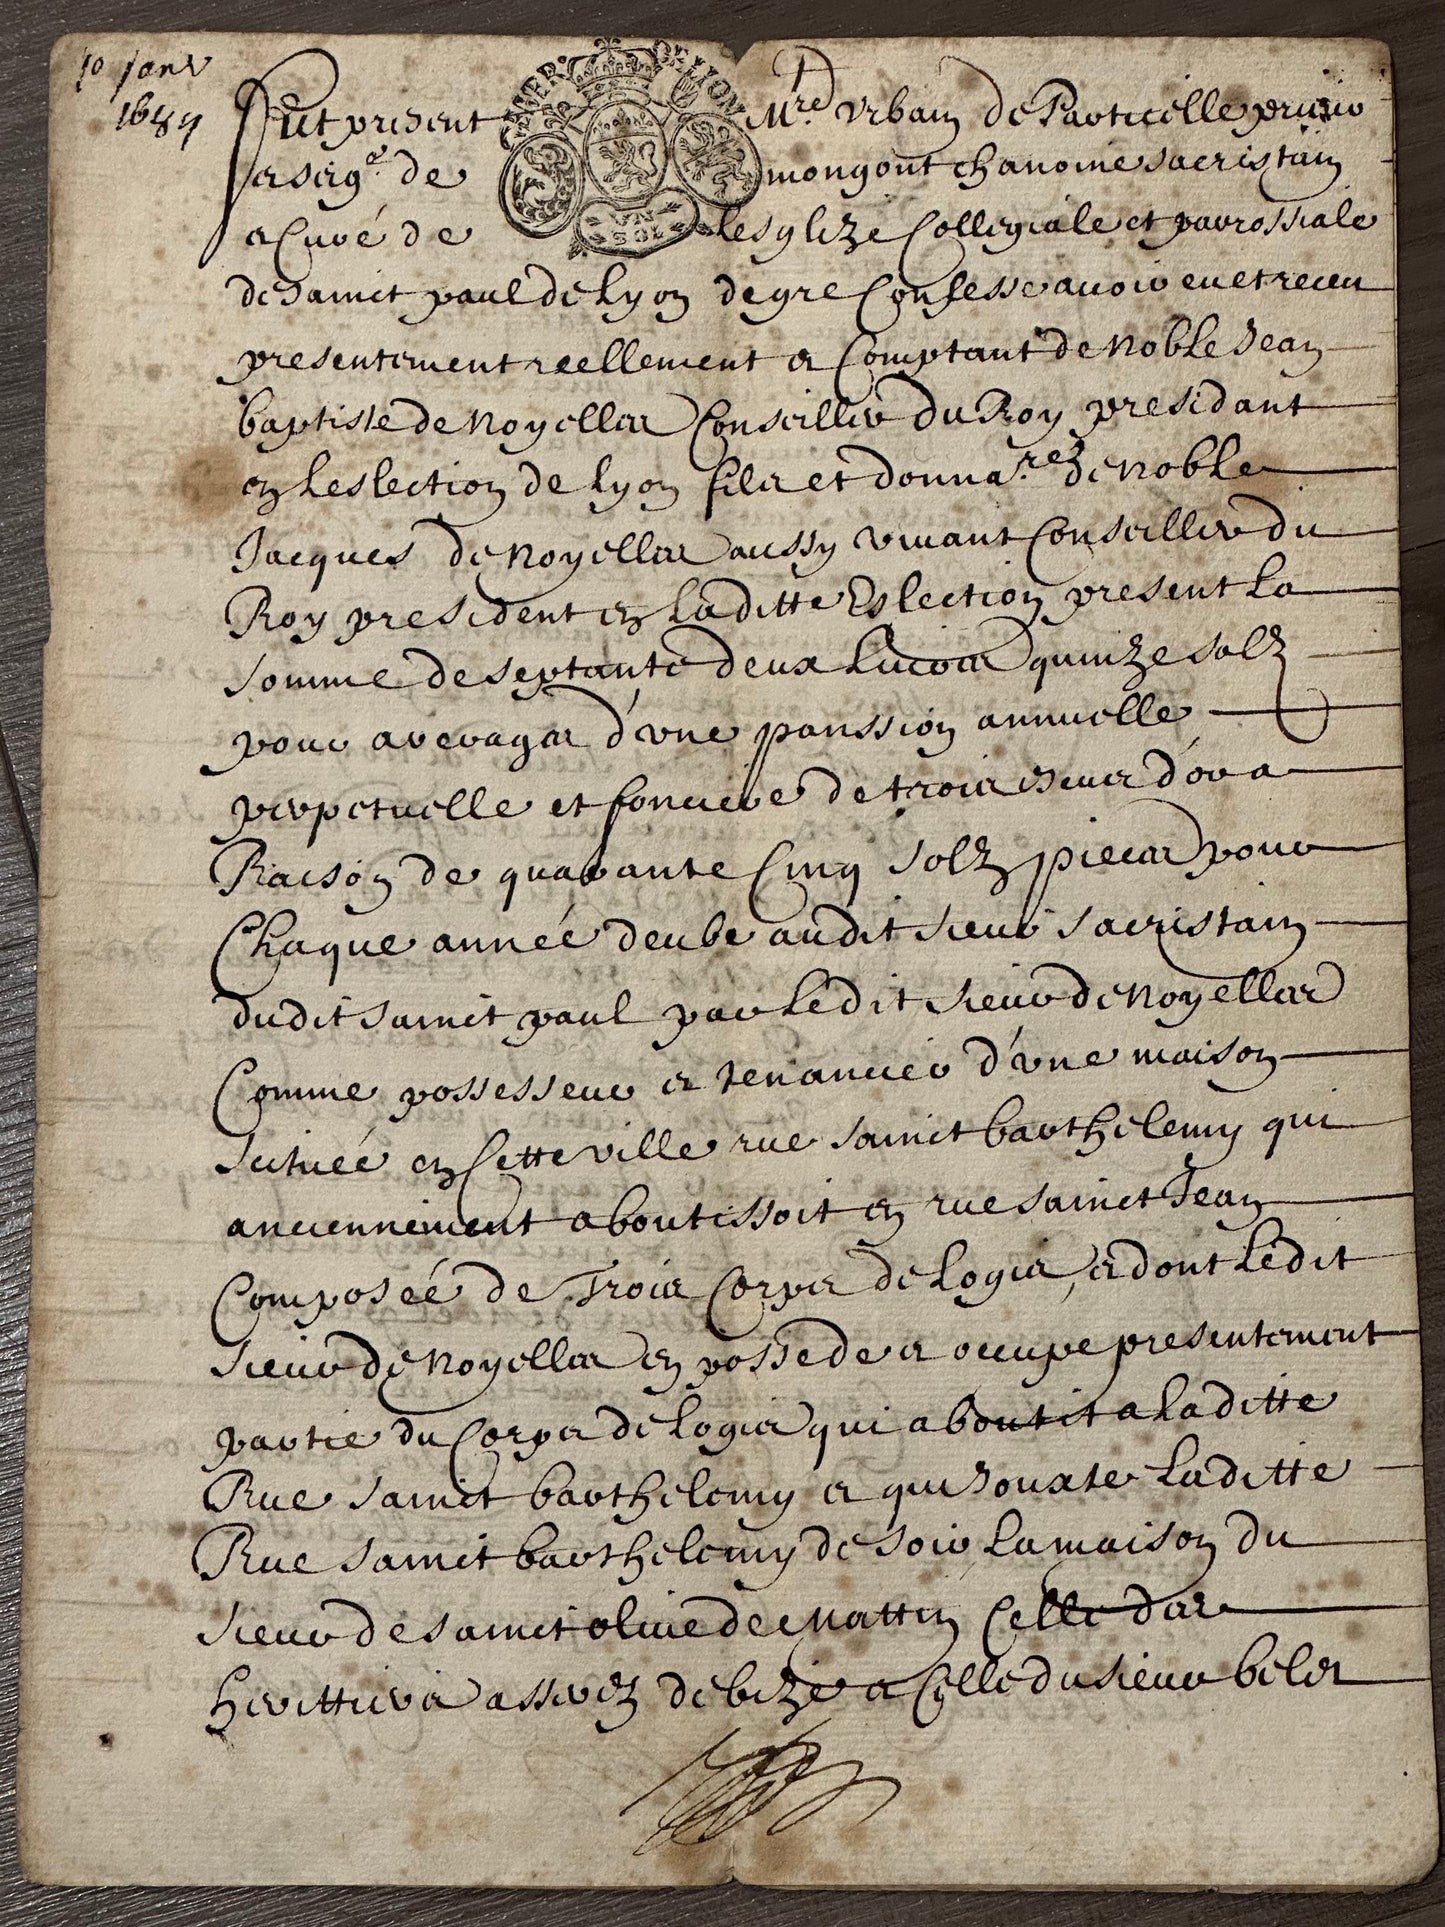 10 Janv
1689
GENER. DE LYON
VN SOL
Fut present Mre. Urbain de Particelle prieur
et seigr. de mongout chanoine sacristain
et Curé de lesglize Collegiale et parrossiale
de Sainct paul de Lyon de gre Confesse avoir eu et receu
presentement reellement et Comptant de Noble Jean
baptiste de Noyelles Conseiller du Roy presidant
en Leslection de Lyon fils et donnare. de Noble
Jacques de Noyelles aussy vivant Conseiller du
Roy president en Laditte Eslection present La
somme de septante deux Livres quinze solz
pour arerages d'vne panssion annuelle
perpetuelle et fonciere de trois escus d'or a
Raison de quarante Cinq solz pieces pour
Chaque année deube audit sieur sacristain
dudit sainct paul par Ledit sieur de Noyelles
Comme possesseur et tenancier d'vne maison
scituée en Cette ville rue sainct barthelemy qui
anciennement aboutissoit en rue sainct Jean
Composée de Trois Corps de Logis, et dont Ledit
sieur de Noyelles en possede et occupe presentement
partie du Corps de Logis qui aboutit a Laditte
Rue sainct barthelemy et qui Jouxte Laditte
Rue sainct barthelemy de soir La maison du
sieur de sainct olive de Mattin Celle des
herittiers assires de bize et Celle du sieur